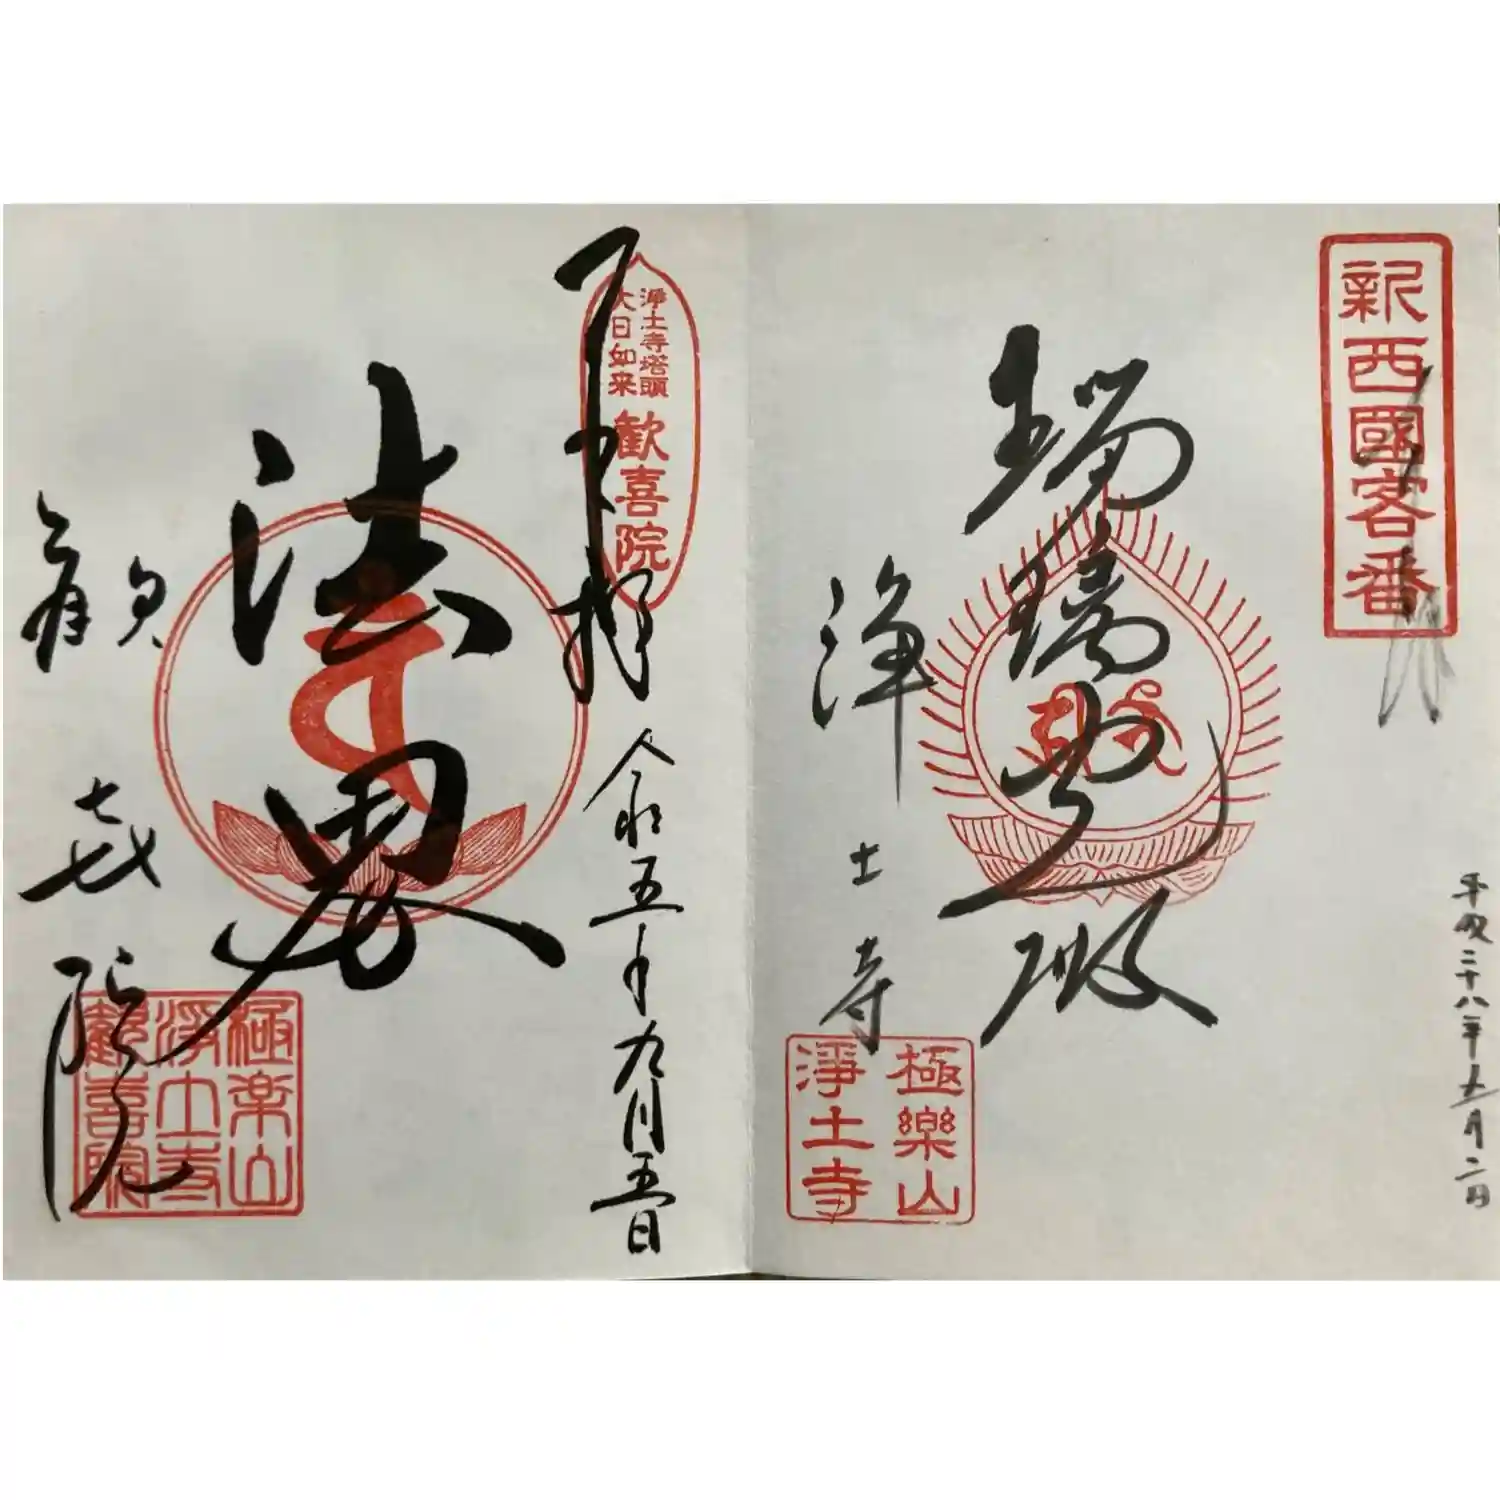 新西國客番
平成二十八年五月二日
瑠璃光殿
浄土寺
極樂山
淨土寺
奉拝
令和五年九月五日
淨土寺塔頭
大日如来
歓喜院
法界
歓喜院
極楽山
浄土寺
歓喜院